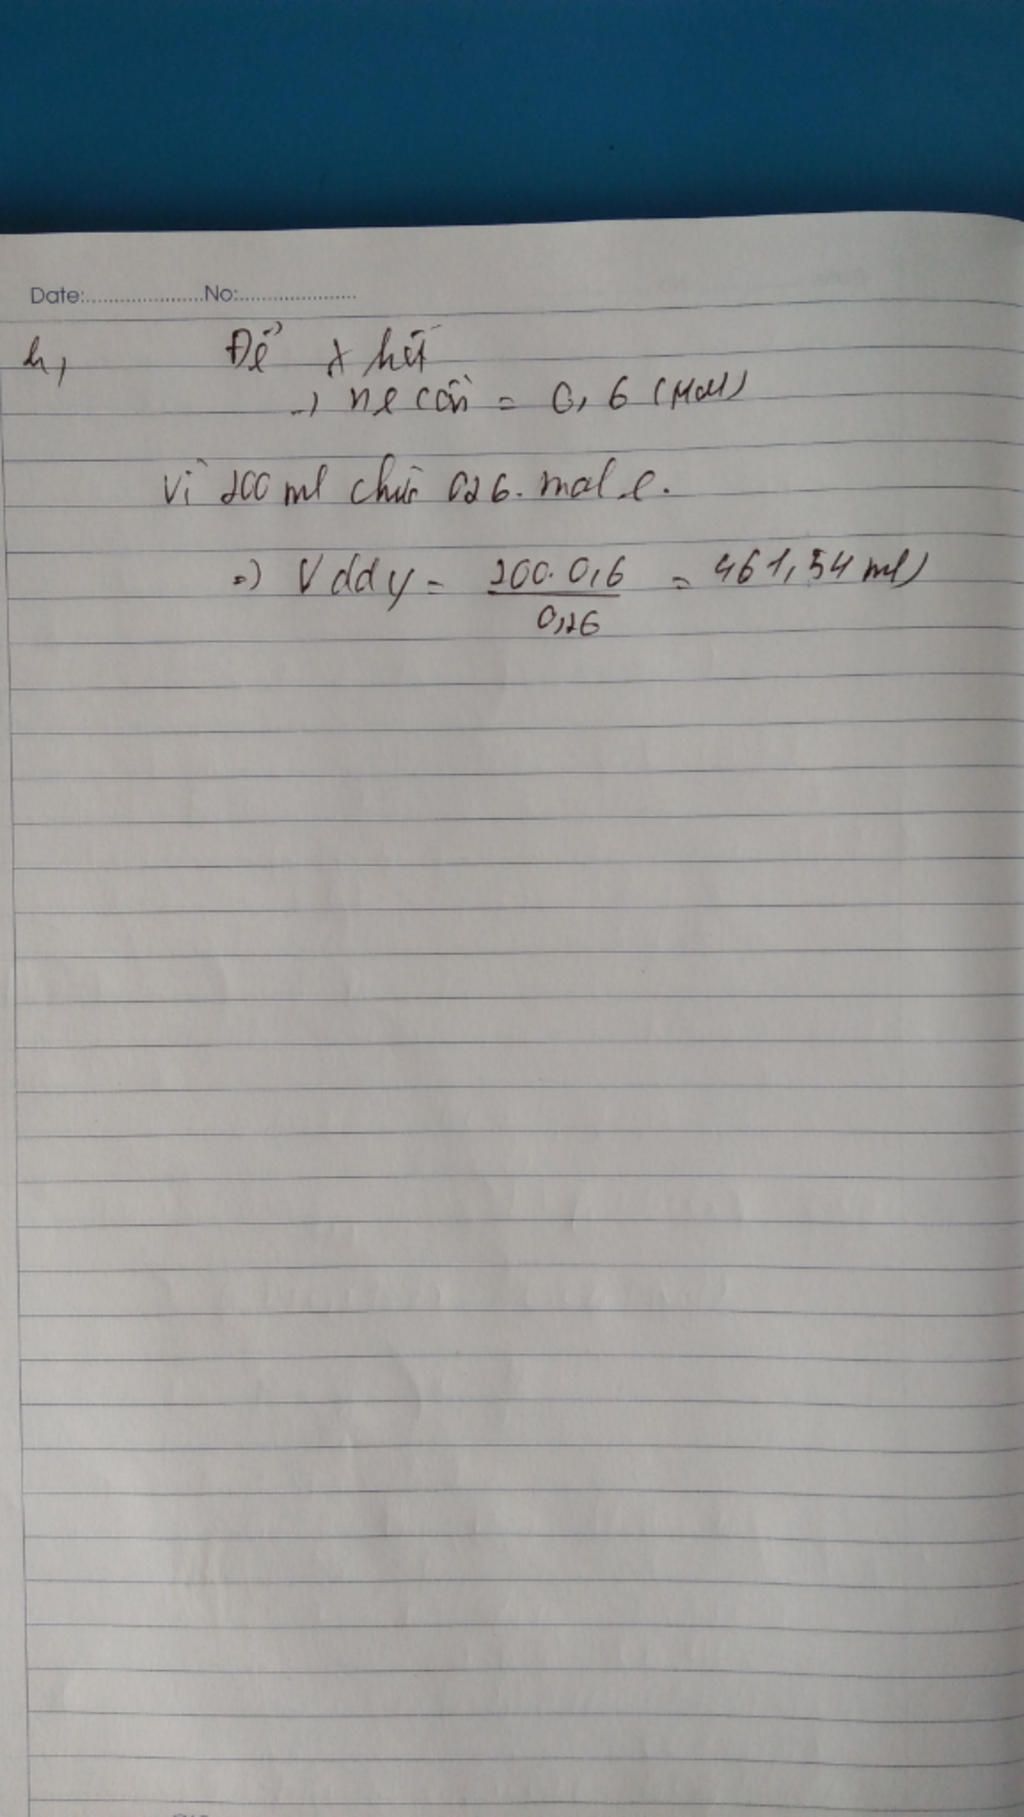 Date:.....................No:.....................
h,
Để X hết
→ ne cần = 0,6 (mol)
Vì 200 ml chứa 0,26. mol e.
=> V ddy = 200.0,6 / 0,26 = 461,54 ml)